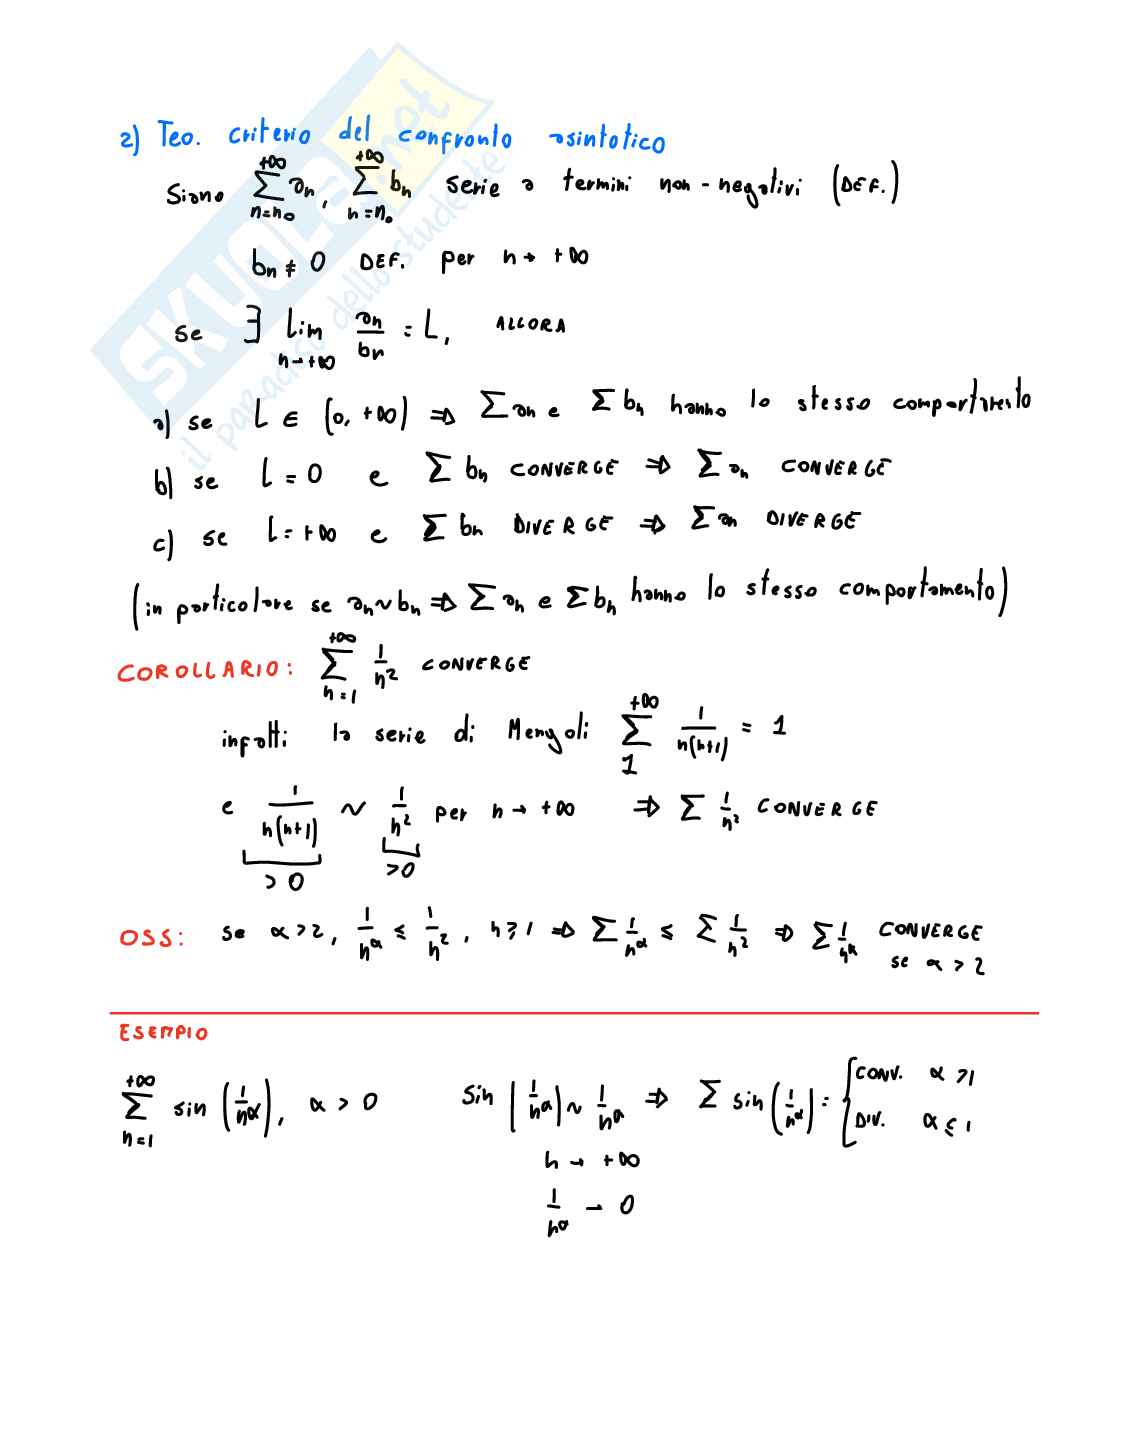 2) Teo. criterio del confronto asintotico
Siano $\sum_{n=n_0}^{+\infty} a_n$, $\sum_{n=n_0}^{+\infty} b_n$ serie a termini non-negativi (DEF.)
$b_n \neq 0$ DEF. per $n \to +\infty$
se $\exists \lim_{n \to +\infty} \frac{a_n}{b_n} = L$, ALLORA
a) se $L \in (0, +\infty) \Rightarrow \sum a_n$ e $\sum b_n$ hanno lo stesso comportamento
b) se $L = 0$ e $\sum b_n$ CONVERGE $\Rightarrow \sum a_n$ CONVERGE
c) se $L = +\infty$ e $\sum b_n$ DIVERGE $\Rightarrow \sum a_n$ DIVERGE
(in particolare se $a_n \sim b_n \Rightarrow \sum a_n$ e $\sum b_n$ hanno lo stesso comportamento)
COROLLARIO: $\sum_{n=1}^{+\infty} \frac{1}{n^2}$ CONVERGE
infatti la serie di Mengoli $\sum_{1}^{+\infty} \frac{1}{n(n+1)} = 1$
e $\underbrace{\frac{1}{n(n+1)}}_{>0} \sim \underbrace{\frac{1}{n^2}}_{>0}$ per $n \to +\infty$ $\Rightarrow \sum \frac{1}{n^2}$ CONVERGE
OSS: se $\alpha > 2$, $\frac{1}{n^\alpha} \leq \frac{1}{n^2}$, $n \geq 1 \Rightarrow \sum \frac{1}{n^\alpha} \leq \sum \frac{1}{n^2} \Rightarrow \sum \frac{1}{n^\alpha}$ CONVERGE
se $\alpha > 2$
ESEMPIO
$\sum_{n=1}^{+\infty} \sin\left(\frac{1}{n^\alpha}\right)$, $\alpha > 0$ $\sin\left(\frac{1}{n^\alpha}\right) \sim \frac{1}{n^\alpha} \Rightarrow \sum \sin\left(\frac{1}{n^\alpha}\right) = \begin{cases} \text{CONV.} & \alpha > 1 \\ \text{DIV.} & \alpha \leq 1 \end{cases}$
$n \to +\infty$
$\frac{1}{n^\alpha} \to 0$
SKUOLA.net
il paradiso dello studente